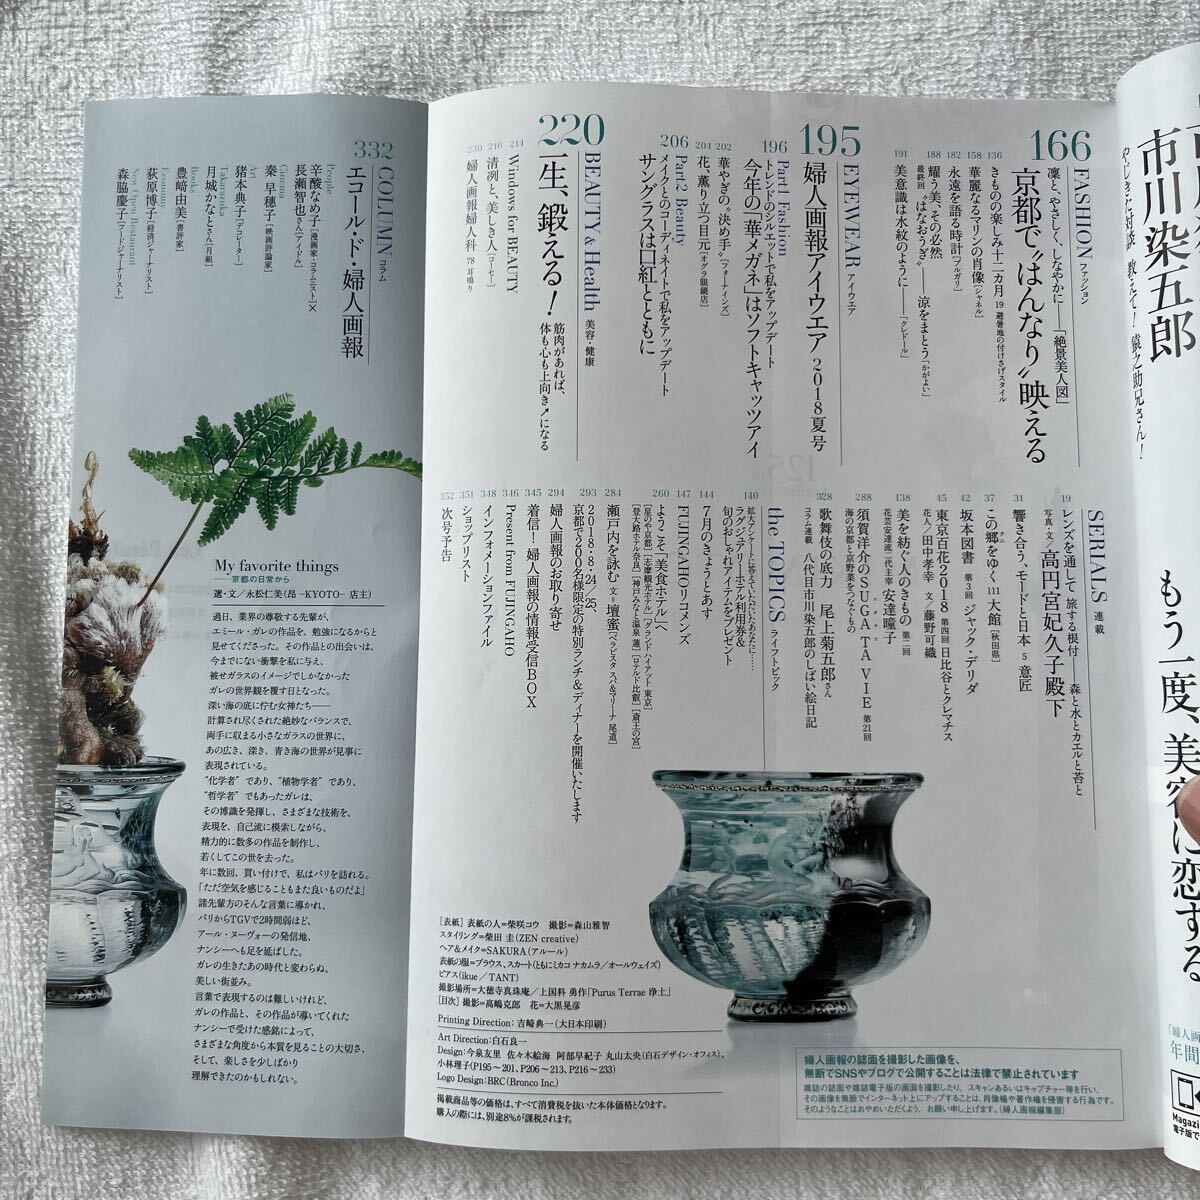 FASHION ファッション
166
凜と、やさしく、しなやかに――「絶景美人図」
京都で“はんなり”映える
136 きものの楽しみ十二カ月 19 避暑地の付けさげスタイル
158 華麗なるマリンの肖像 [シャネル]
182 永遠を語る時計 [ブルガリ]
188 耀う美、その必然
最終回 “はなおうぎ”――涼をまとう [かがよい]
191 美意識は水紋のように―― [クレドール]
EYEWEAR アイウエア
195
婦人画報アイウエア 2018夏号
Part1 Fashion
トレンドのシルエットで私をアップデート
196 今年の「華メガネ」はソフトキャッツアイ
202 華やぎの“決め手” [フォーナインズ]
204 花、薫り立つ目元 [オグラ眼鏡店]
Part2 Beauty
メイクとのコーディネイトで私をアップデート
206 サングラスは口紅とともに
BEAUTY & Health 美容・健康
220
一生、鍛える！
筋肉があれば、
体も心も上向き↗になる
214 Windows for BEAUTY
216 清冽と、美しき人 [コーセー]
230 婦人画報婦人科 78 耳鳴り
SERIALS 連載
19 レンズを通して 旅する根付――森と水とカエルと苔と
写真・文／高円宮妃久子殿下
31 響き合う、モードと日本 5 意匠
37 この郷をゆく 111 大館 [秋田県]
42 坂本図書 第3回 ジャック・デリダ
45 東京百花2018 第四回 日比谷とクレマチス
花人／田中孝幸 文／藤野可織
138 美を紡ぐ人のきもの 第二回
花芸安達流二代主宰 安達瞳子
288 須賀洋介のSUGATA VIE 第21回
海の京都と京野菜をつなぐもの
328 歌舞伎の底力 尾上菊五郎さん
コラム連載 八代目市川染五郎のしばい絵日記
the TOPICS ライフトピック
拡大アンケートに答えていただいたあなたに……
140 ラグジュアリーホテル利用券&
旬のおしゃれアイテムをプレゼント
144 7月のきょうとあす
147 FUJINGAHOリコメンズ
260 ようこそ「美食ホテル」へ
[星のや京都] [志摩観光ホテル] [グランド ハイアット 東京]
[登大路ホテル奈良] [神戸みなと温泉 蓮] [ロテルド比叡] [斎王の宮]
284 瀬戸内を詠む 文＝壇蜜 [ベラビスタ スパ&マリーナ 尾道]
293 2018・8・24／25、
京都で200名様限定の特別ランチ&ディナーを開催いたします
294 婦人画報のお取り寄せ
345 着信！ 婦人画報の情報受信BOX
346 Present from FUJINGAHO
348 インフォメーションファイル
351 ショップリスト
352 次号予告
COLUMN コラム
332
エコール・ド・婦人画報
People
辛酸なめ子 [漫画家・コラムニスト]×
長瀬智也さん [アイドル]
Cinema
秦 早穂子 [映画評論家]
Art
猪本典子 [デコレーター]
Takarazuka
月城かなとさん [月組]
Books
豊﨑由美 [書評家]
Economy
荻原博子 [経済ジャーナリスト]
New Open Restaurant
森脇慶子 [フードジャーナリスト]
My favorite things
――京都の日常から
選・文／永松仁美（昂 -KYOTO- 店主）
過日、業界の尊敬する先輩が、
エミール・ガレの作品を、勉強になるからと
見せてくださった。その作品との出会いは、
今までにない衝撃を私に与え、
被せガラスのイメージでしかなかった
ガレの世界観を覆す日となった。
深い海の底に佇む女神たち――
計算され尽くされた絶妙なバランスで、
両手に収まる小さなガラスの世界に、
あの広き、深き、青き海の世界が見事に
表現されている。
“化学者”であり、“植物学者”であり、
“哲学者”でもあったガレは、
その博識を発揮し、さまざまな技術を、
表現を、自己流に模索しながら、
精力的に数多の作品を制作し、
若くしてこの世を去った。
年に数回、買い付けで、私はパリを訪れる。
「ただ空気を感じることもまた良いものだよ」
諸先輩方のそんな言葉に導かれ、
パリからTGVで2時間弱ほど、
アール・ヌーヴォーの発信地、
ナンシーへも足を延ばした。
ガレの生きたあの時代と変わらぬ、
美しい街並み。
言葉で表現するのは難しいけれど、
ガレの作品と、その作品が導いてくれた
ナンシーで受けた感銘によって、
さまざまな角度から本質を見ることの大切さ、
そして、楽しさを少しばかり
理解できたのかもしれない。
[表紙] 表紙の人＝柴咲コウ 撮影＝森山雅智
スタイリング＝柴田 圭（ZEN creative）
ヘア&メイク＝SAKURA（アルール）
表紙の服＝ブラウス、スカート（ともにミカコ ナカムラ／オールウェイズ）
ピアス（ikue／TANT）
撮影場所＝大徳寺真珠庵／上国料 勇作「Purus Terrae 浄土」
[目次] 撮影＝高嶋克郎 花＝大黒晃彦
Printing Direction: 吉崎典一（大日本印刷）
Art Direction: 白石良一
Design: 今泉友里 佐々木絵海 阿部早紀子 丸山太央（白石デザイン・オフィス）、
小林理子（P195～201、P206～213、P216～233）
Logo Design: BRC（Bronco Inc.）
掲載商品等の価格は、すべて消費税を抜いた本体価格となります。
購入の際には、別途8%が課税されます。
婦人画報の誌面を撮影した画像を、
無断でSNSやブログで公開することは法律で禁止されています
雑誌の誌面や雑誌電子版の画面を撮影したり、スキャンあるいはキャプチャー等を行い、
その画像を無断でインターネット上にアップすることは、肖像権や著作権を侵害する行為です。
そのようなことはおやめいただくよう、お願い申し上げます。（婦人画報編集部）
市川染五郎
やじきた対談 教えて！ 猿之助兄さん！
もう一度、美容に恋する
年間
Magazi
電子版で